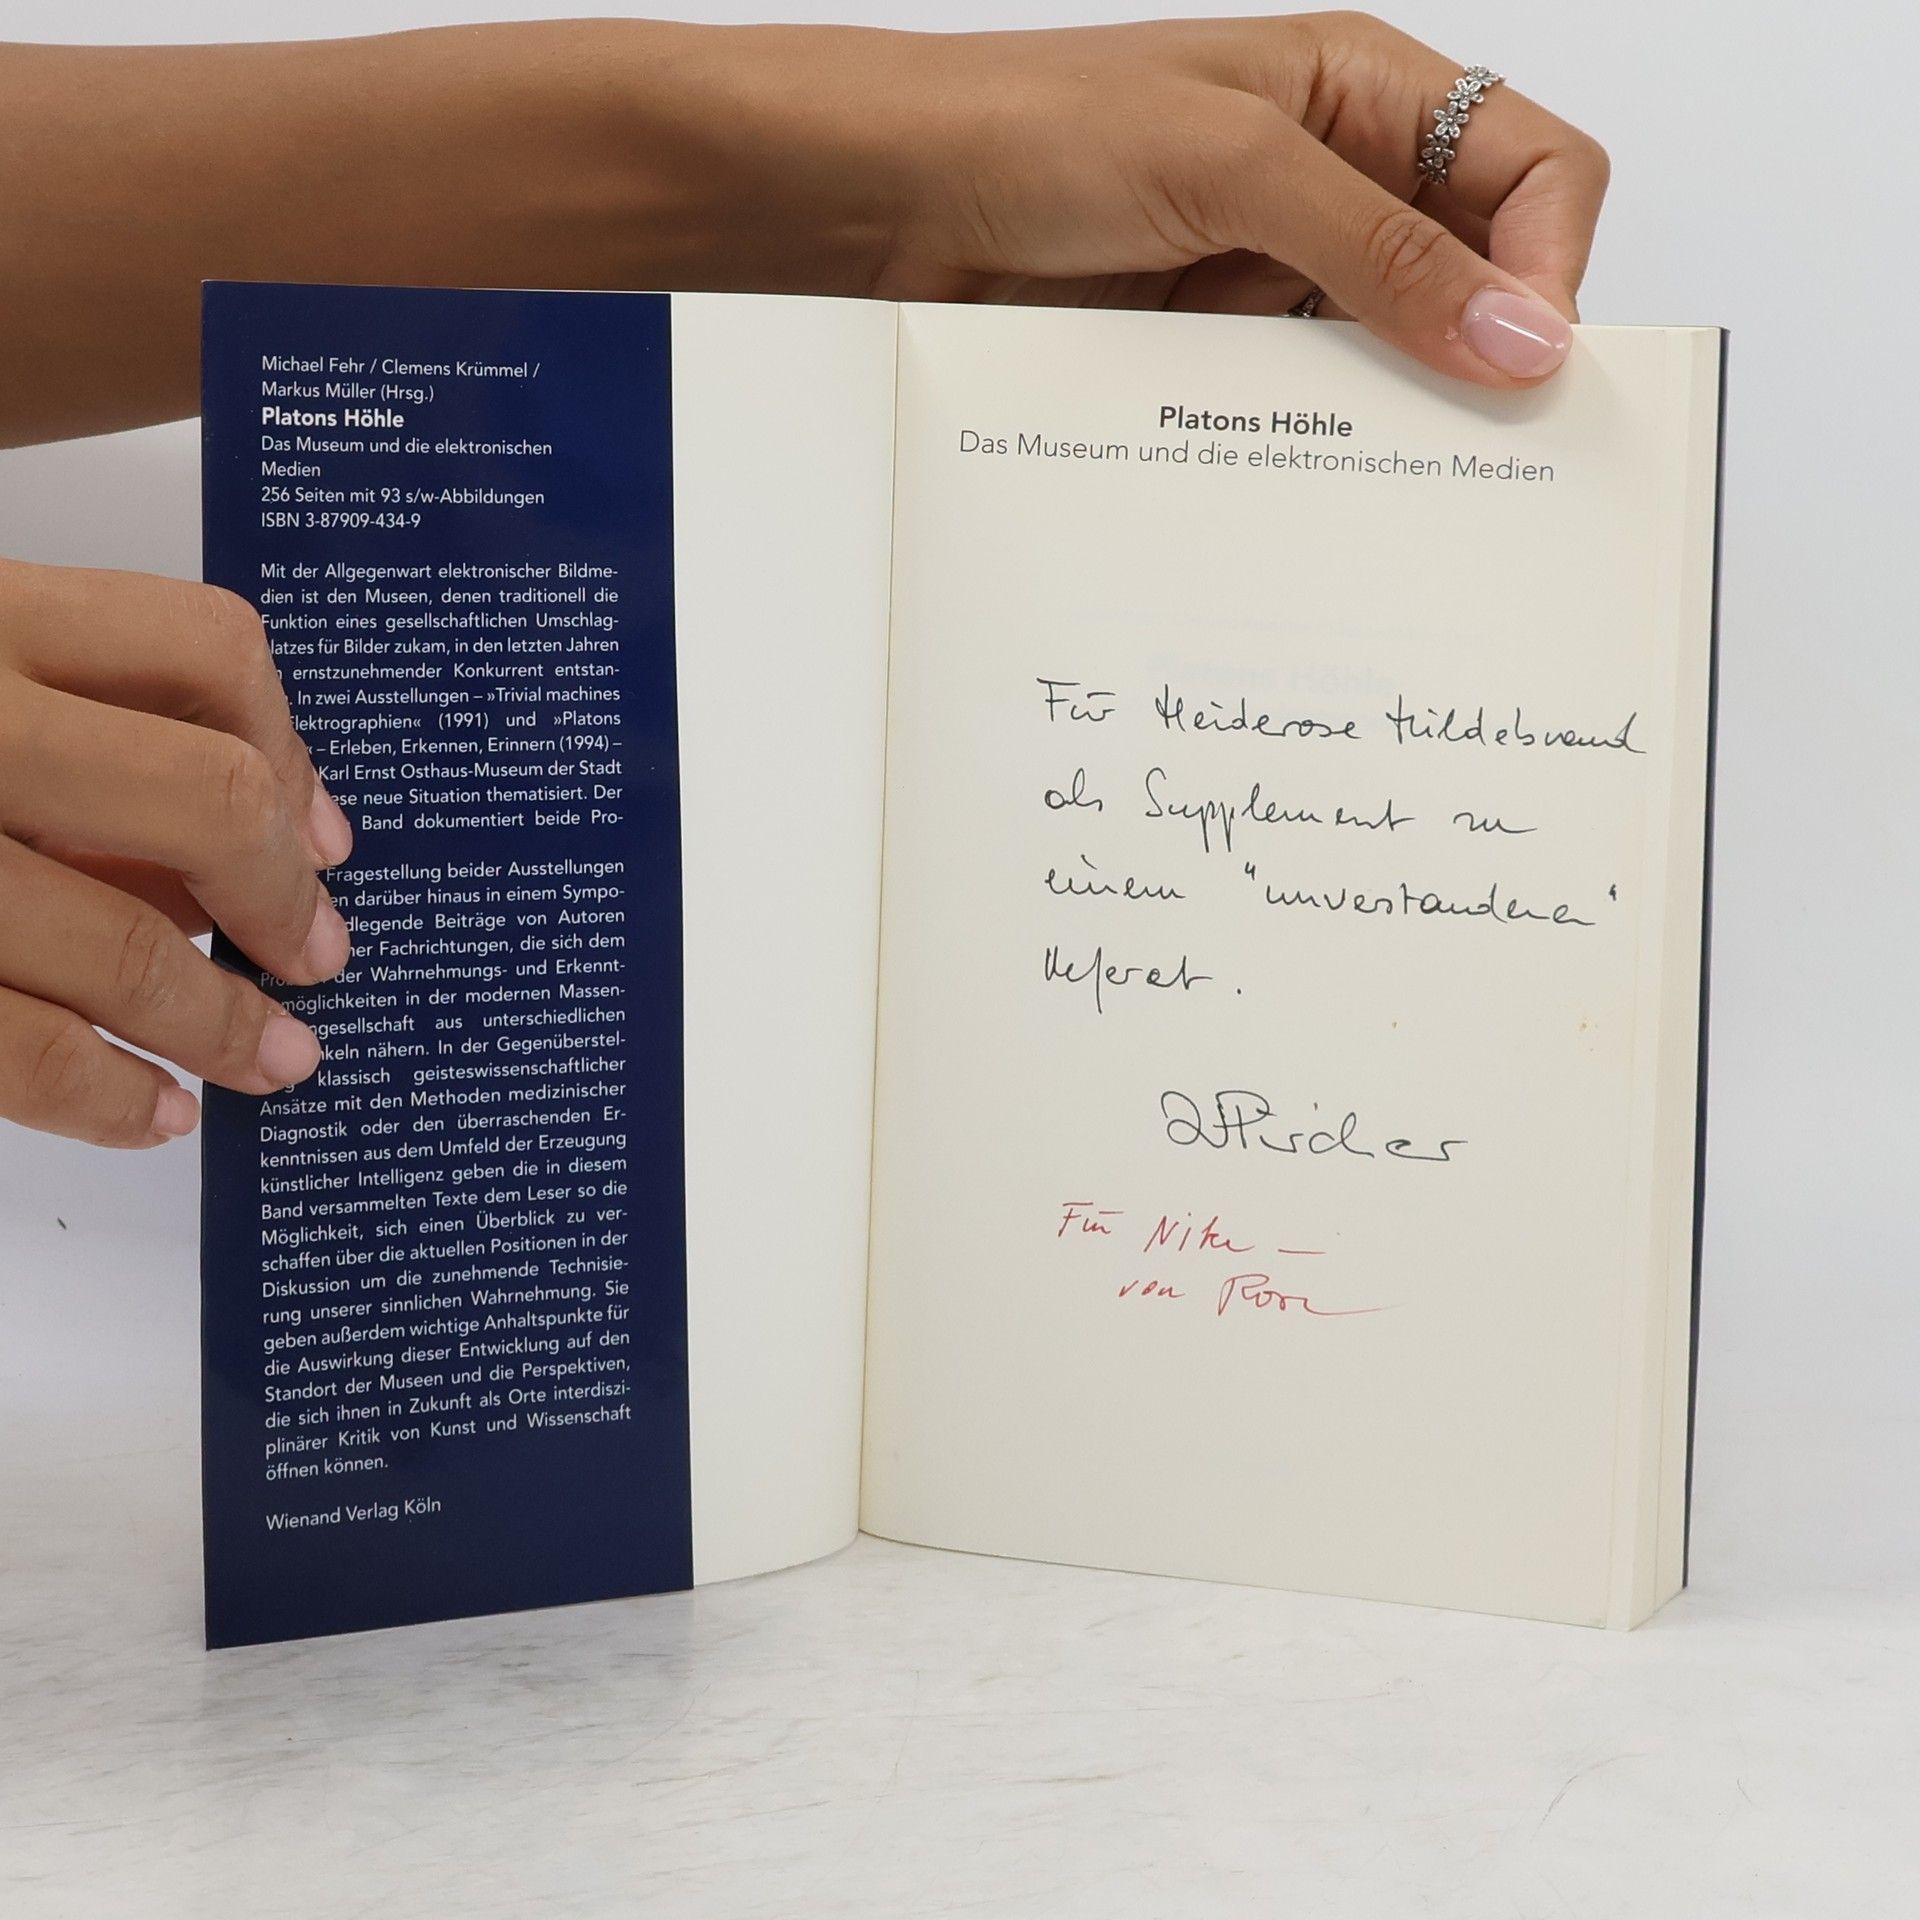 Michael Fehr / Clemens Krümmel /
Markus Müller (Hrsg.)
Platons Höhle
Das Museum und die elektronischen
Medien
256 Seiten mit 93 s/w-Abbildungen
ISBN 3-87909-434-9
Mit der Allgegenwart elektronischer Bildme-
dien ist den Museen, denen traditionell die
Funktion eines gesellschaftlichen Umschlag-
latzes für Bilder zukam, in den letzten Jahren
ernstzunehmender Konkurrent entstan-
. In zwei Ausstellungen – »Trivial machines
lektrographien« (1991) und »Platons
« – Erleben, Erkennen, Erinnern (1994) –
Karl Ernst Osthaus-Museum der Stadt
ese neue Situation thematisiert. Der
Band dokumentiert beide Pro-
Fragestellung beider Ausstellungen
en darüber hinaus in einem Sympo-
dlegende Beiträge von Autoren
her Fachrichtungen, die sich dem
der Wahrnehmungs- und Erkennt-
möglichkeiten in der modernen Massen-
ngesellschaft aus unterschiedlichen
nkeln nähern. In der Gegenüberstel-
g klassisch geisteswissenschaftlicher
Ansätze mit den Methoden medizinischer
Diagnostik oder den überraschenden Er-
kenntnissen aus dem Umfeld der Erzeugung
künstlicher Intelligenz geben die in diesem
Band versammelten Texte dem Leser so die
Möglichkeit, sich einen Überblick zu ver-
schaffen über die aktuellen Positionen in der
Diskussion um die zunehmende Technisie-
rung unserer sinnlichen Wahrnehmung. Sie
geben außerdem wichtige Anhaltspunkte für
die Auswirkung dieser Entwicklung auf den
Standort der Museen und die Perspektiven,
die sich ihnen in Zukunft als Orte interdiszi-
plinärer Kritik von Kunst und Wissenschaft
öffnen können.
Wienand Verlag Köln
Platons Höhle
Das Museum und die elektronischen Medien
Für Heiderose Hildebrand
als Supplement zu
einem "unverstandenen"
Referat.
Für Nike –
von Rose